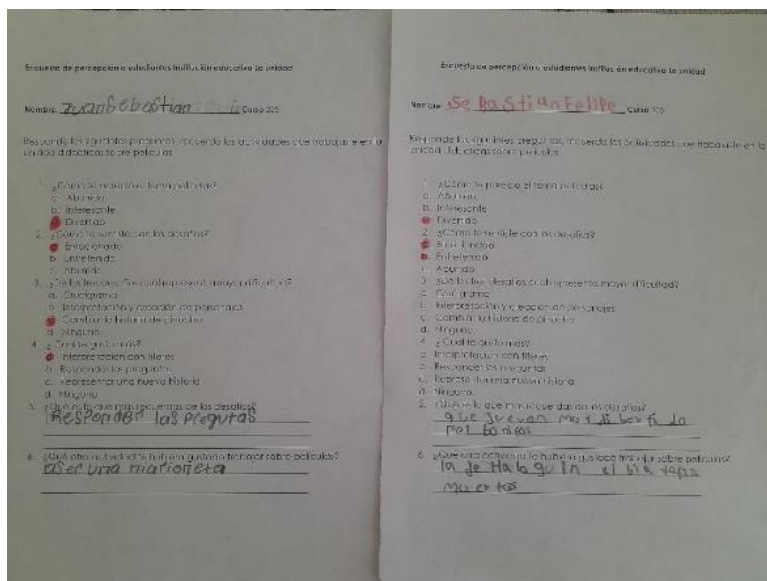 Encuesta de percepción a estudiantes Institución educativa La unidad
Nombre: Juan Sebastian Curso 205
Responde las siguientes preguntas, recuerda las actividades que trabajaste en la
unidad didácticas sobre películas
1. ¿Cómo te pareció el tema películas?
a. Aburrido
b. Interesante
Divertido
2. ¿Cómo te sentiste con los desafíos?
Emocionado
b. Entretenido
c. Aburrido
3. ¿De los tres desafíos cuál presentó mayor dificultad?
a. Crucigrama
b. Interpretación y creación de personajes
Cambiar la historia de pinocho
d. Ninguno
4. ¿Cuál te gustó más?
Interpretación con títeres
b. Responder las preguntas
c. Representar una nueva historia
d. Ninguno
5. ¿Qué es lo que más recuerdas de los desafíos?
Responder las pregutas
6. ¿Qué otra actividad te hubiera gustado trabajar sobre películas?
aser una marioneta
Encuesta de percepción a estudiantes Institución educativa La unidad
Nombre Sebastian Felipe Curso 205
Responde las siguientes preguntas, recuerda las actividades que trabajaste en la
unidad didácticas sobre películas
1. ¿Cómo te pareció el tema películas?
a. Aburrido
b. Interesante
Divertido
2. ¿Cómo te sentiste con los desafíos?
Emocionado
Entretenido
c. Aburrido
3. ¿De los tres desafíos cuál presentó mayor dificultad?
a. Crucigrama
b. Interpretación y creación de personajes
c. Cambiar la historia de pinocho
d. Ninguno
4. ¿Cuál te gustó más?
a. Interpretación con títeres
b. Responder las preguntas
c. Representar una nueva historia
d. Ninguno
5. ¿Qué es lo que más recuerdas de los desafíos?
que
6. ¿Qué otra actividad te hubiera gustado trabajar sobre películas?
la de el